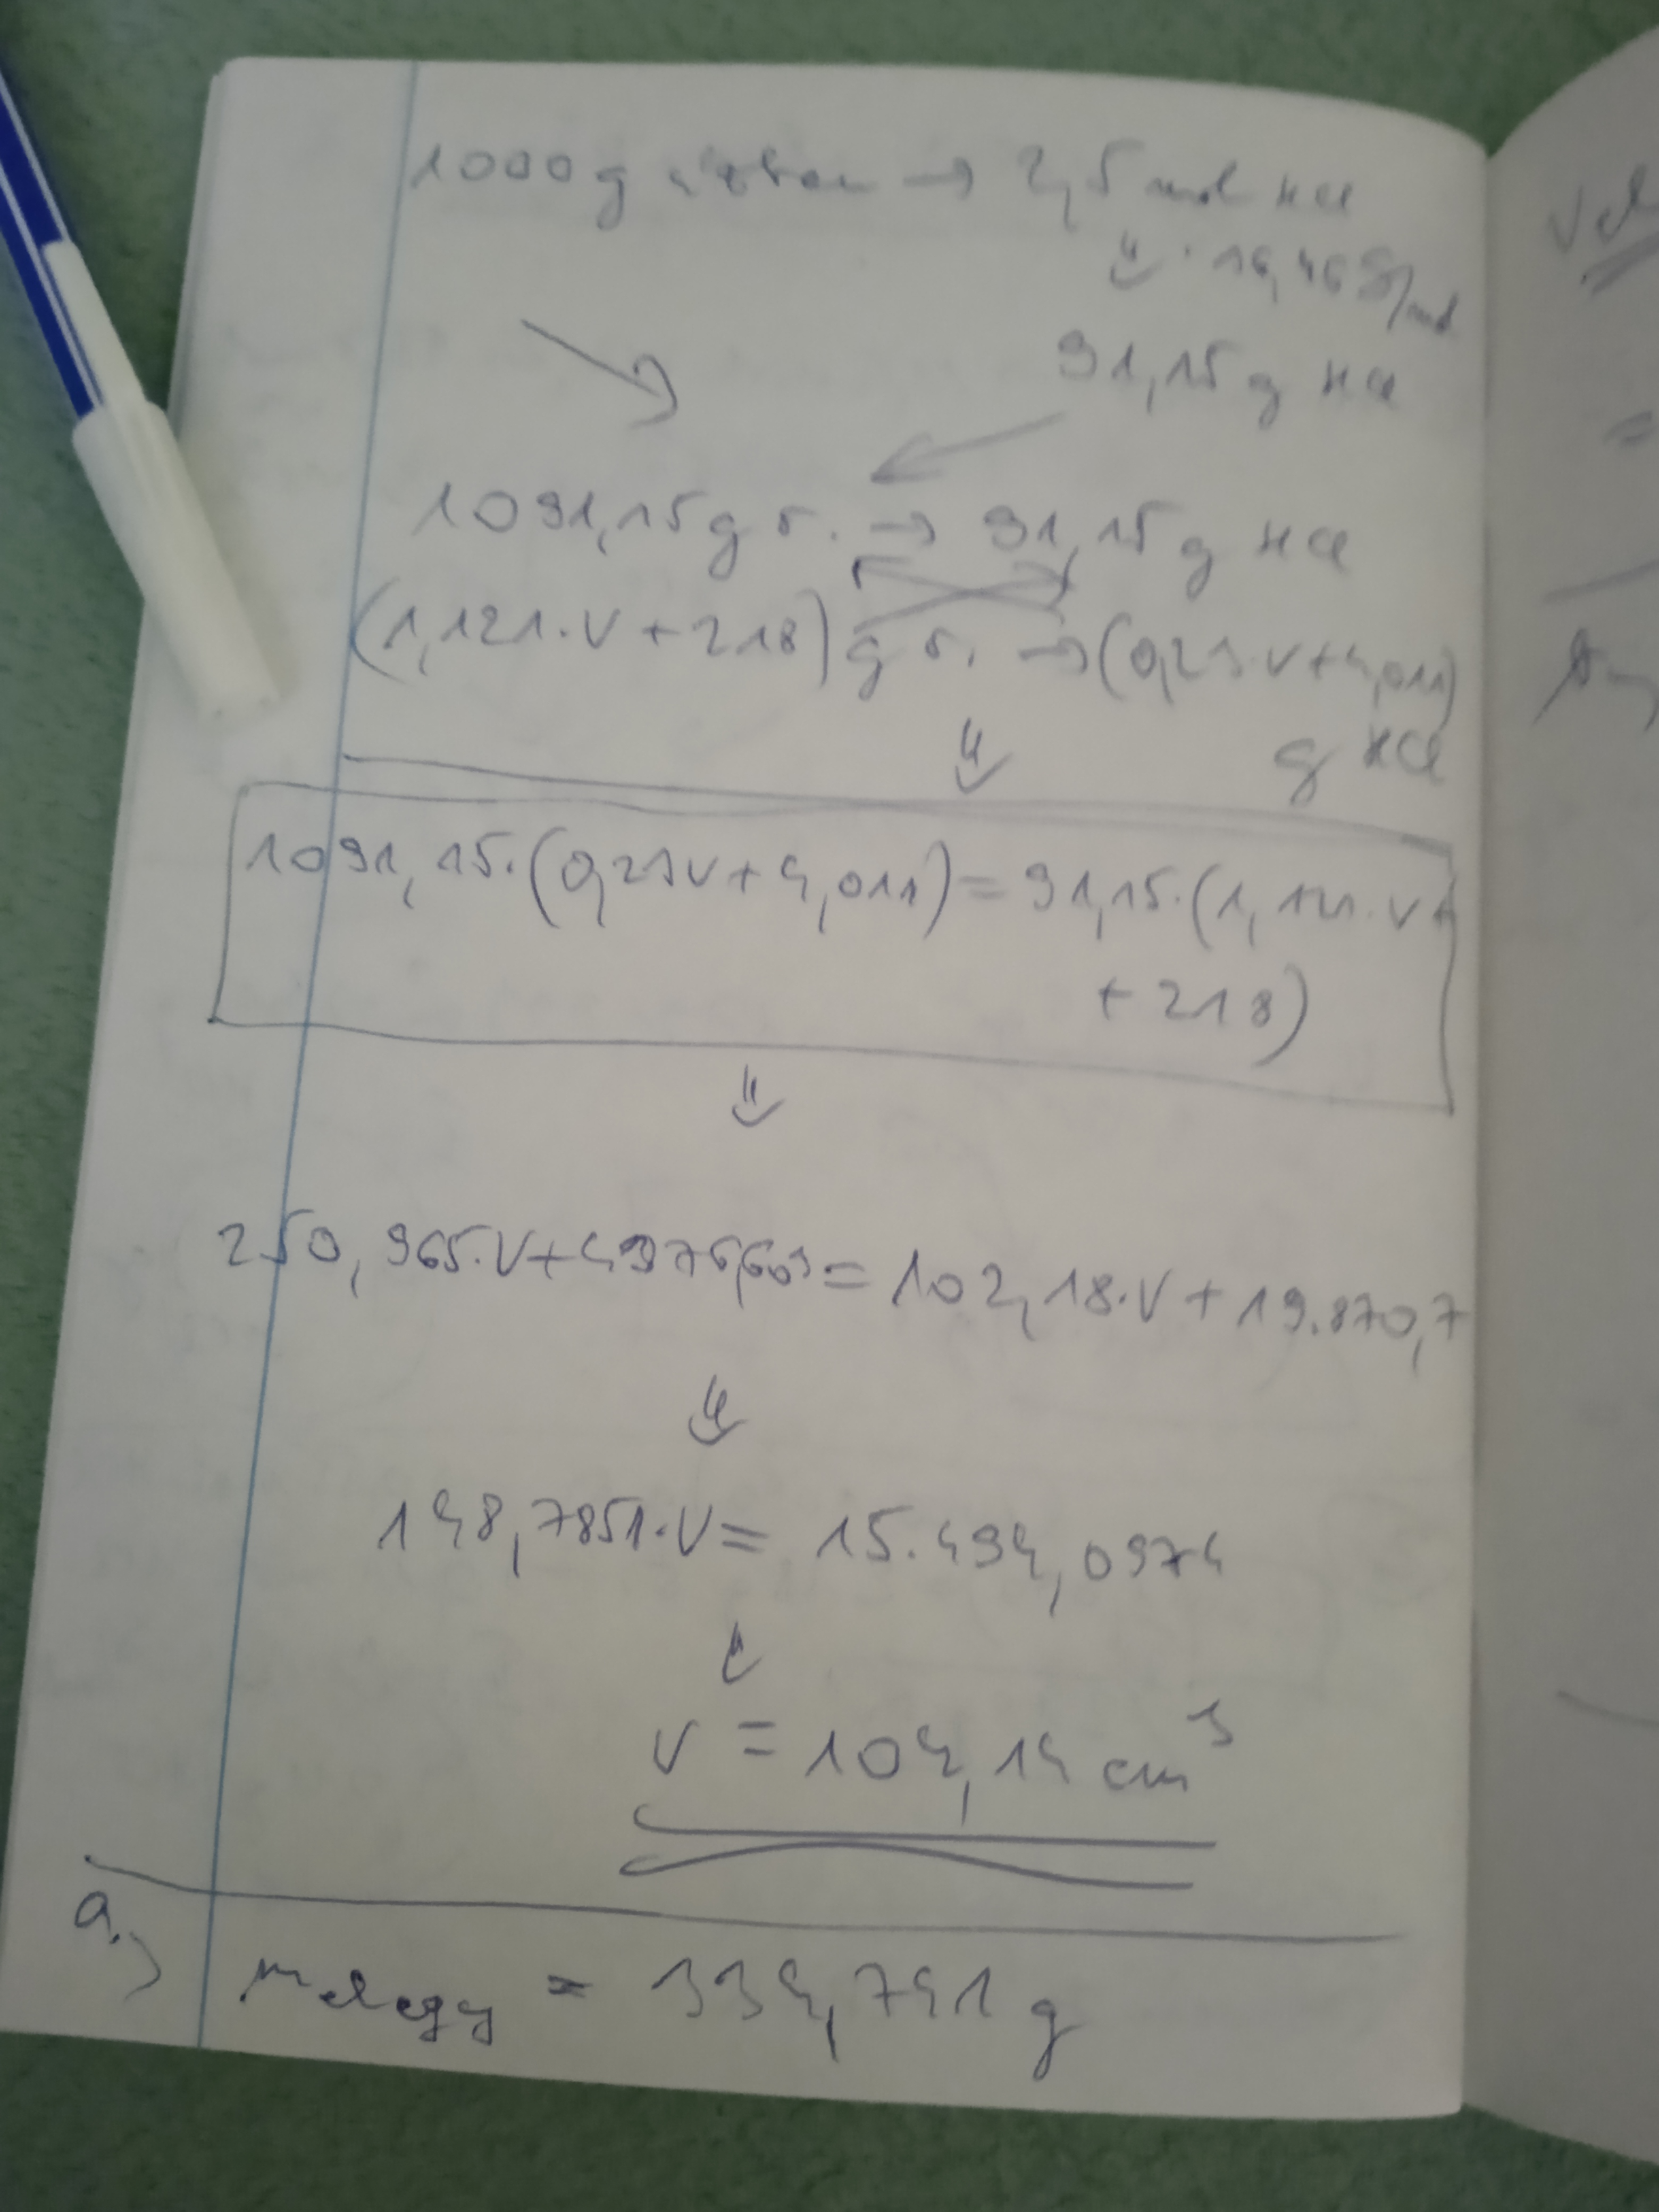 1000 g vízben → 2,5 mol HCl
⇓ · 36,46 g/mol
91,15 g HCl
1091,15 g o. → 91,15 g HCl
(1,121·V + 218) g o. → (0,23·V + 4,011)
g HCl
⇓
1091,15·(0,23V + 4,011) = 91,15·(1,121·V +
+ 218)
⇓
250,965·V + 4376,603 = 102,18·V + 19.870,7
⇓
148,7851·V = 15.494,0974
⇓
V = 104,14 cm³
a.) melegy = 334,741 g